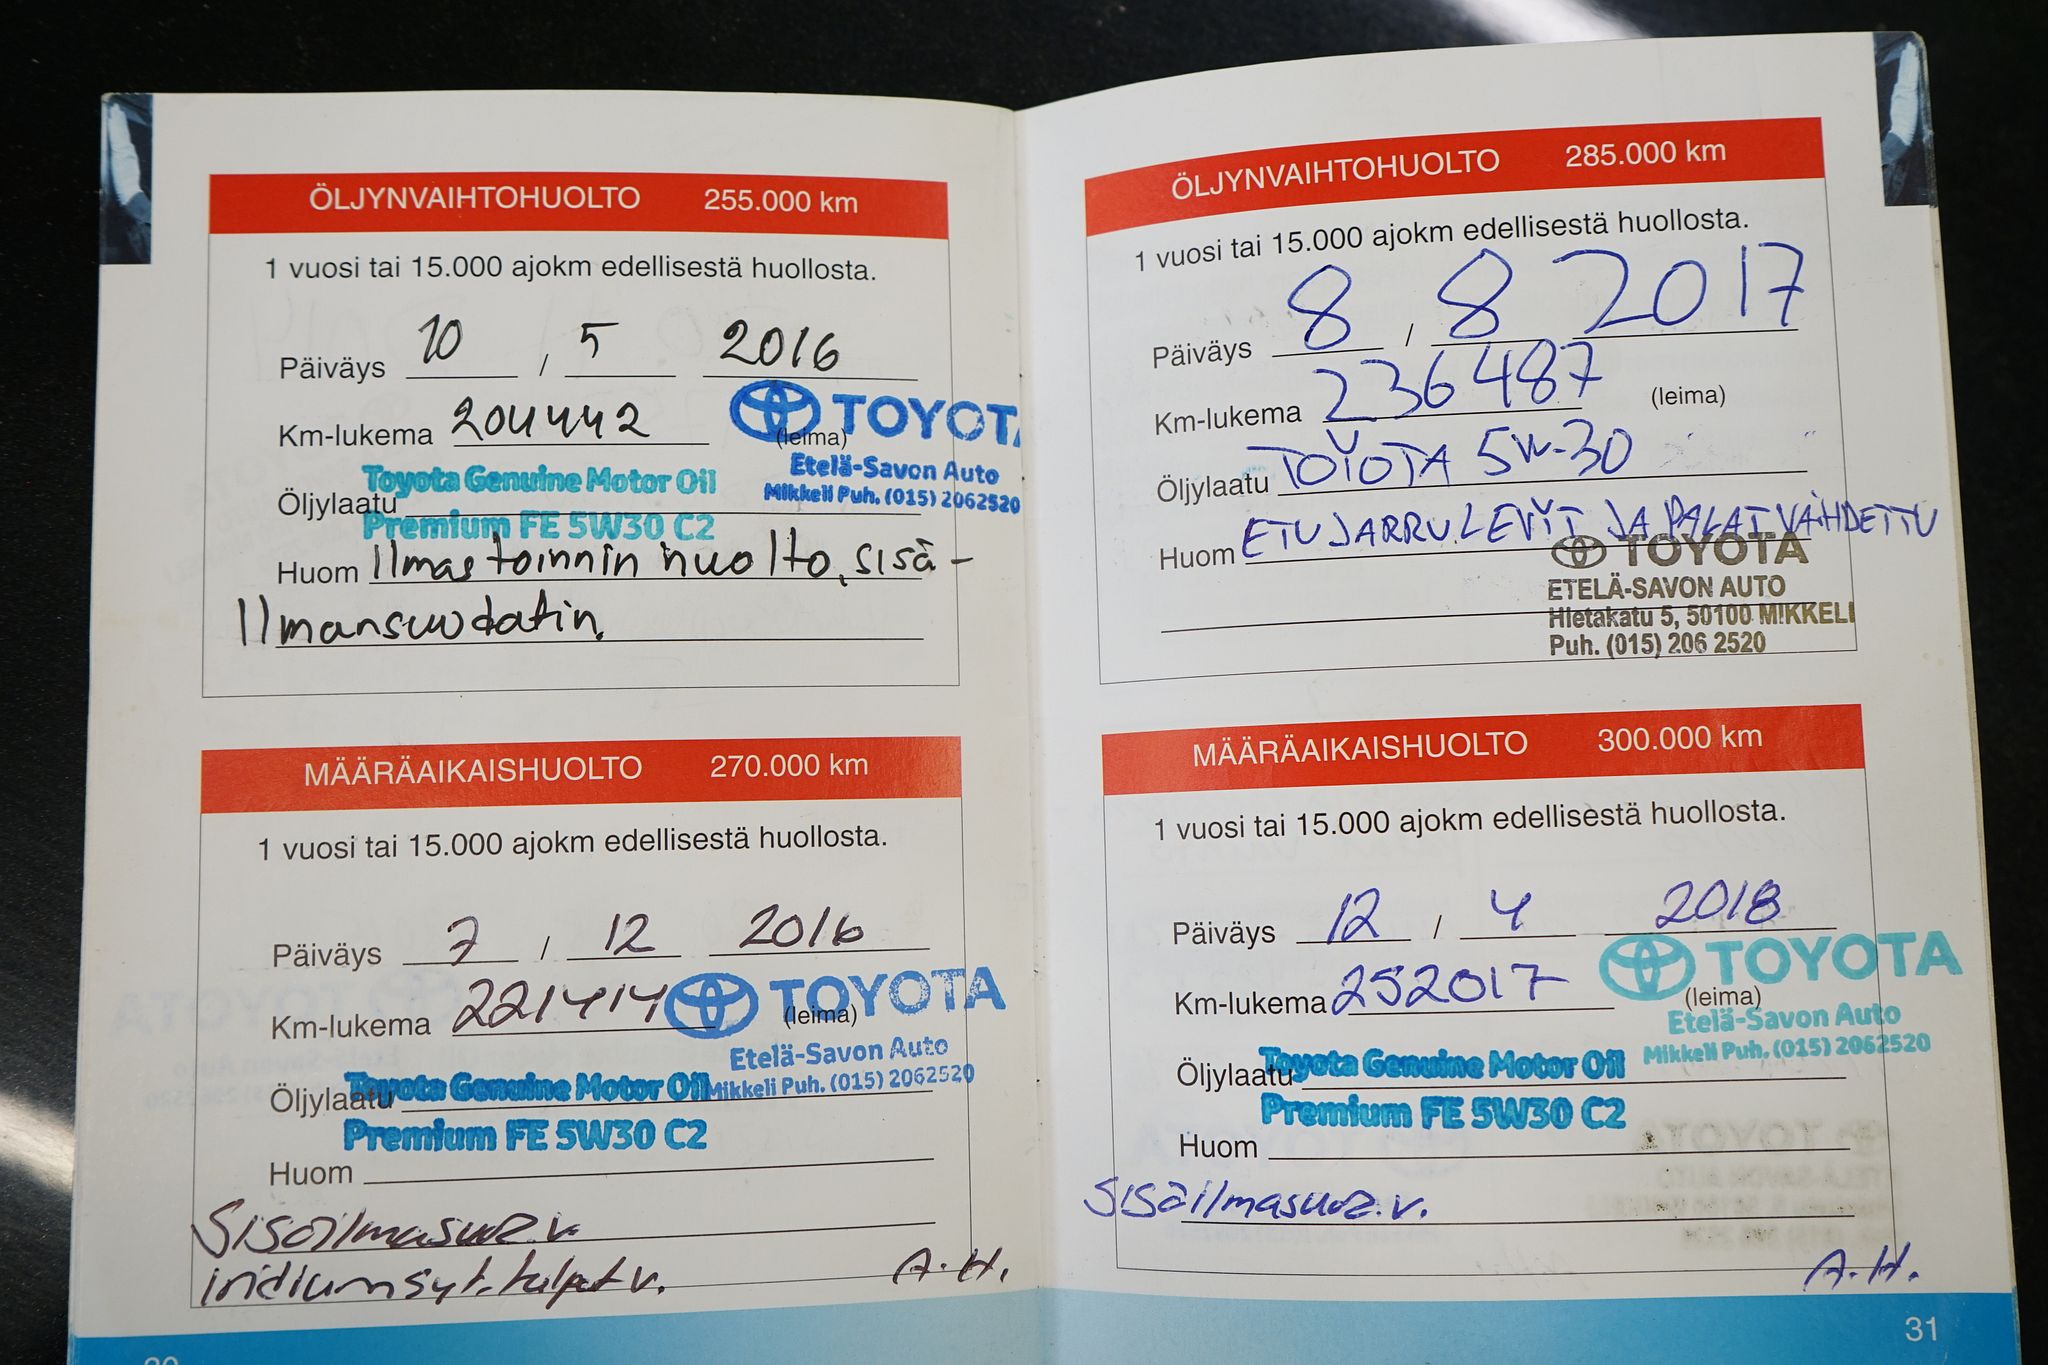 ÖLJYNVAIHTOHUOLTO 255.000 km
1 vuosi tai 15.000 ajokm edellisestä huollosta.
Päiväys 10 / 5 2016
Km-lukema 204442 (leima)
TOYOTA
Etelä-Savon Auto
Mikkeli Puh. (015) 2062520
Toyota Genuine Motor Oil
Öljylaatu
Premium FE 5W30 C2
Huom Ilmastoinnin huolto, sisä-
Ilmansuodatin.
MÄÄRÄAIKAISHUOLTO 270.000 km
1 vuosi tai 15.000 ajokm edellisestä huollosta.
Päiväys 7 / 12 2016
Km-lukema 221414 (leima)
TOYOTA
Etelä-Savon Auto
Mikkeli Puh. (015) 2062520
Toyota Genuine Motor Oil
Öljylaatu
Premium FE 5W30 C2
Huom
Sisäilmasuod.v.
iridium syt.tulpat v. A.H.
ÖLJYNVAIHTOHUOLTO 285.000 km
1 vuosi tai 15.000 ajokm edellisestä huollosta.
Päiväys 8 / 8 2017
Km-lukema 236487 (leima)
Öljylaatu TOYOTA 5W-30
Huom ETUJARRULEVYT JA PALAT VAIHDETTU
TOYOTA
ETELÄ-SAVON AUTO
Hietakatu 5, 50100 MIKKELI
Puh. (015) 206 2520
MÄÄRÄAIKAISHUOLTO 300.000 km
1 vuosi tai 15.000 ajokm edellisestä huollosta.
Päiväys 12 / 4 2018
Km-lukema 252017 (leima)
TOYOTA
Etelä-Savon Auto
Mikkeli Puh. (015) 2062520
Toyota Genuine Motor Oil
Öljylaatu
Premium FE 5W30 C2
Huom
Sisäilmasuod.v.
A.H.
31